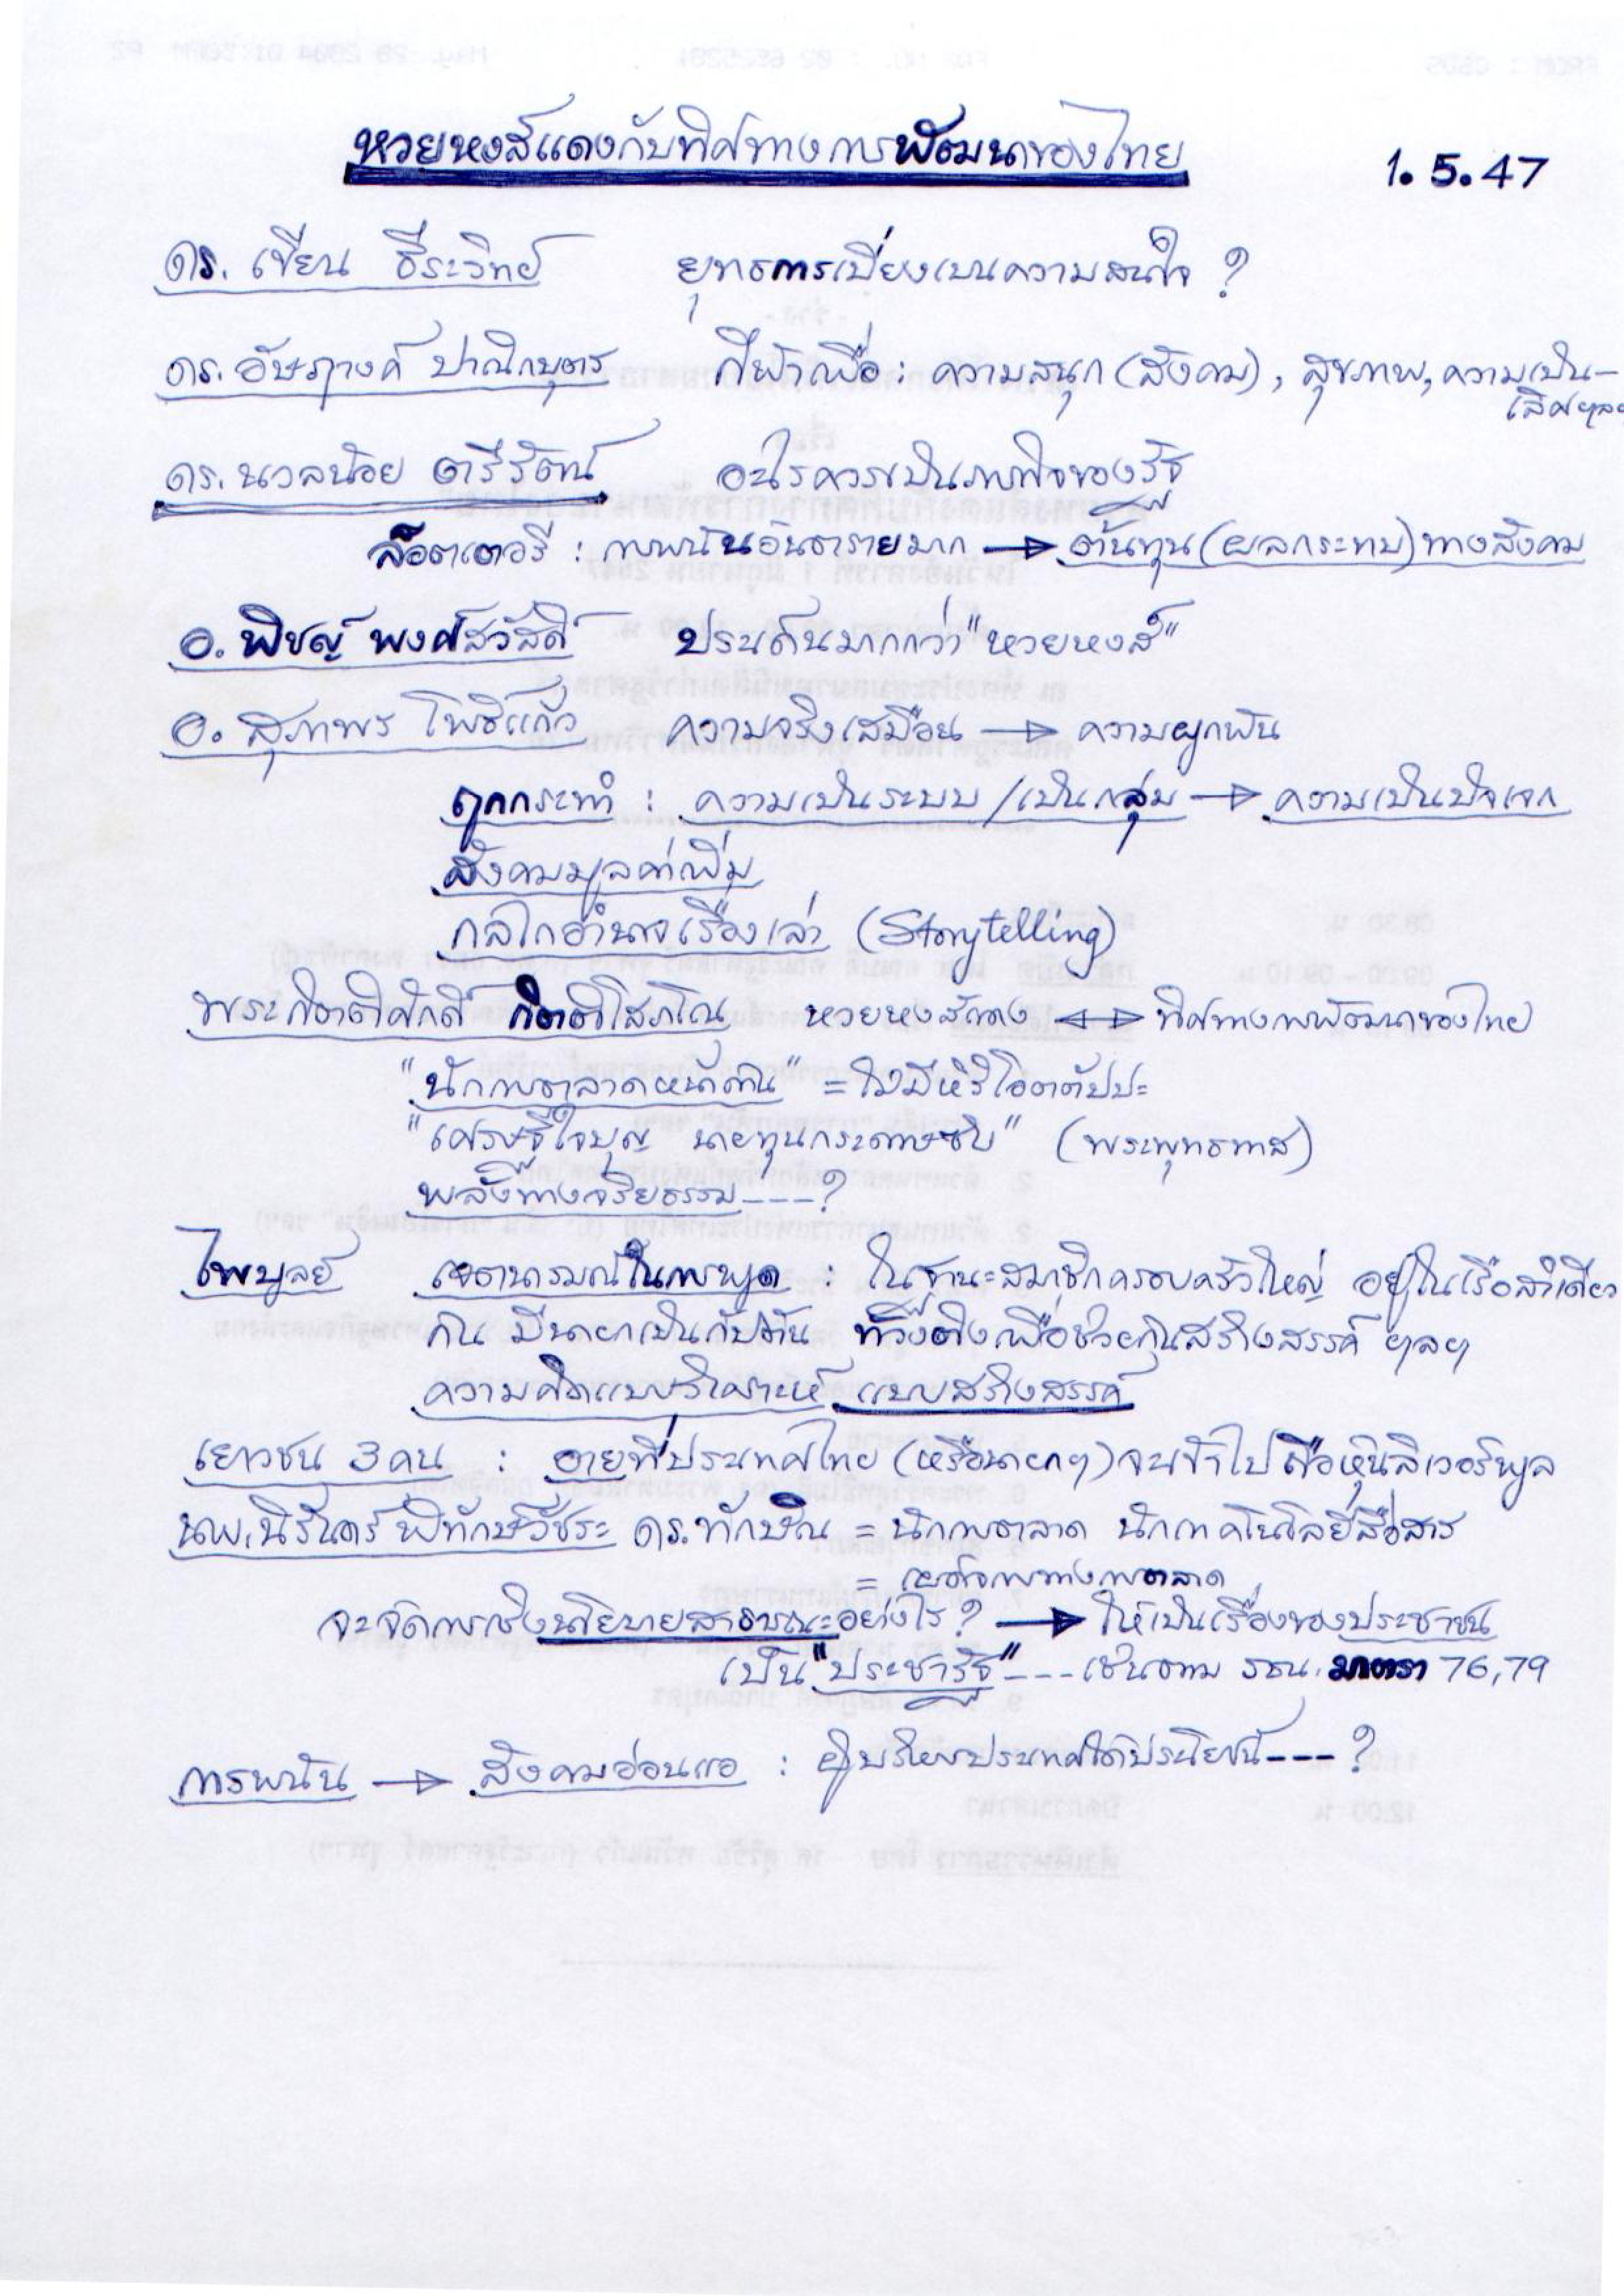 หวยหงส์แดงกับทิศทางการพัฒนาของไทย 1.5.47
ดร. เขียน ธีระวิทย์ ยุทธการเบี่ยงเบนความสนใจ ?
ดร. อัษฎางค์ ปาณิกบุตร กีฬาเพื่อ : ความสนุก (สังคม), สุขภาพ, ความเป็น-
เลิศ ฯลฯ
ดร. นวลน้อย ตรีรัตน์ อะไรควรเป็นภารกิจของรัฐ
ล็อตเตอรี่ : การพนันอันตรายมาก → ต้นทุน (ผลกระทบ) ทางสังคม
อ. พิชญ์ พงศ์สวัสดิ์ ประเด็นมากกว่า "หวยหงส์"
อ. สุภาพร โพธิ์แก้ว ความจริงเสมือน → ความผูกพัน
ถูกกระทำ : ความเป็นระบบ / เป็นกลุ่ม → ความเป็นปัจเจก
สังคมมูลค่าเพิ่ม
กลไกอำนาจเรื่องเล่า (Storytelling)
พระกิตติศักดิ์ กิตติโสภโณ หวยหงส์แดง ↔ ทิศทางการพัฒนาของไทย
"นักการตลาดหน้าด้าน" = ไม่มีหิริโอตตัปปะ
"เศรษฐีใจบุญ นายทุนกระดาษซับ" (พระพุทธทาส)
พลังทางจริยธรรม ----?
ไพบูลย์ เจตนารมณ์ในการพูด : ในฐานะสมาชิกครอบครัวใหญ่ อยู่ในเรือลำเดียว
กัน มีนายกเป็นกัปตัน ท้วงติงเพื่อช่วยกันสร้างสรรค์ ฯลฯ
ความคิดแบบวิเคราะห์ แบบสร้างสรรค์
เยาวชน 3 คน : อายที่ประเทศไทย (หรือนายกฯ) จะเข้าไปซื้อหุ้นลิเวอร์พูล
นพ. นิรันดร์ พิทักษ์วัชระ ดร. ทักษิณ = นักการตลาด นักเทคโนโลยีสื่อสาร
= เผด็จการทางการตลาด
จะจัดการเชิงนโยบายสาธารณะอย่างไร ? → ให้เป็นเรื่องของประชาชน
เป็น "ประชารัฐ" ---- เช่นตาม รธน. มาตรา 76, 79
การพนัน → สังคมอ่อนแอ : ผู้บริหารประเทศได้ประโยชน์ ---- ?